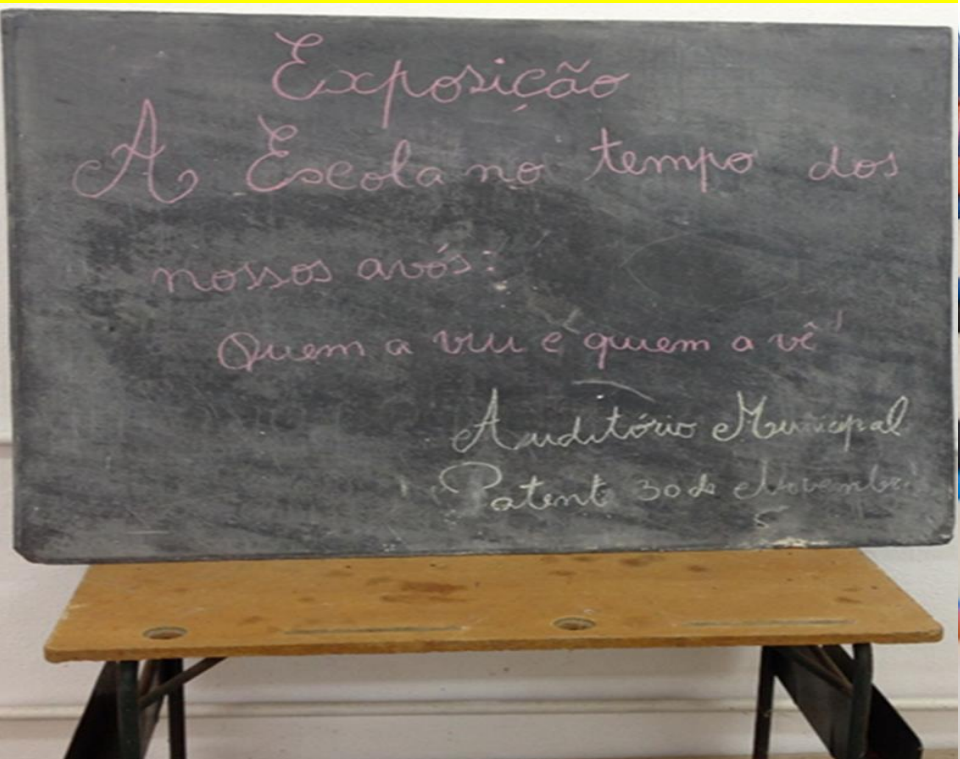 Exposição
A Escola no tempo dos
nossos avós:
Quem a viu e quem a vê
Auditório Municipal
Patent 30 de Novembro